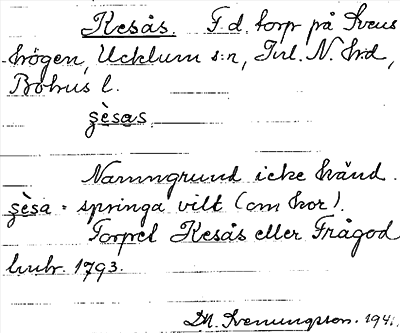 Kesås. F.d. torp på Svens
högen, Ucklum s:n, Inl. N. h:d,
Bohus l.
ʂèsas.
Namngrund icke känd.
ʂèsa = springa vilt (om kor).
Torpet Kesås eller Frågod
husbr. 1793.
D.A. Svenungsson. 194